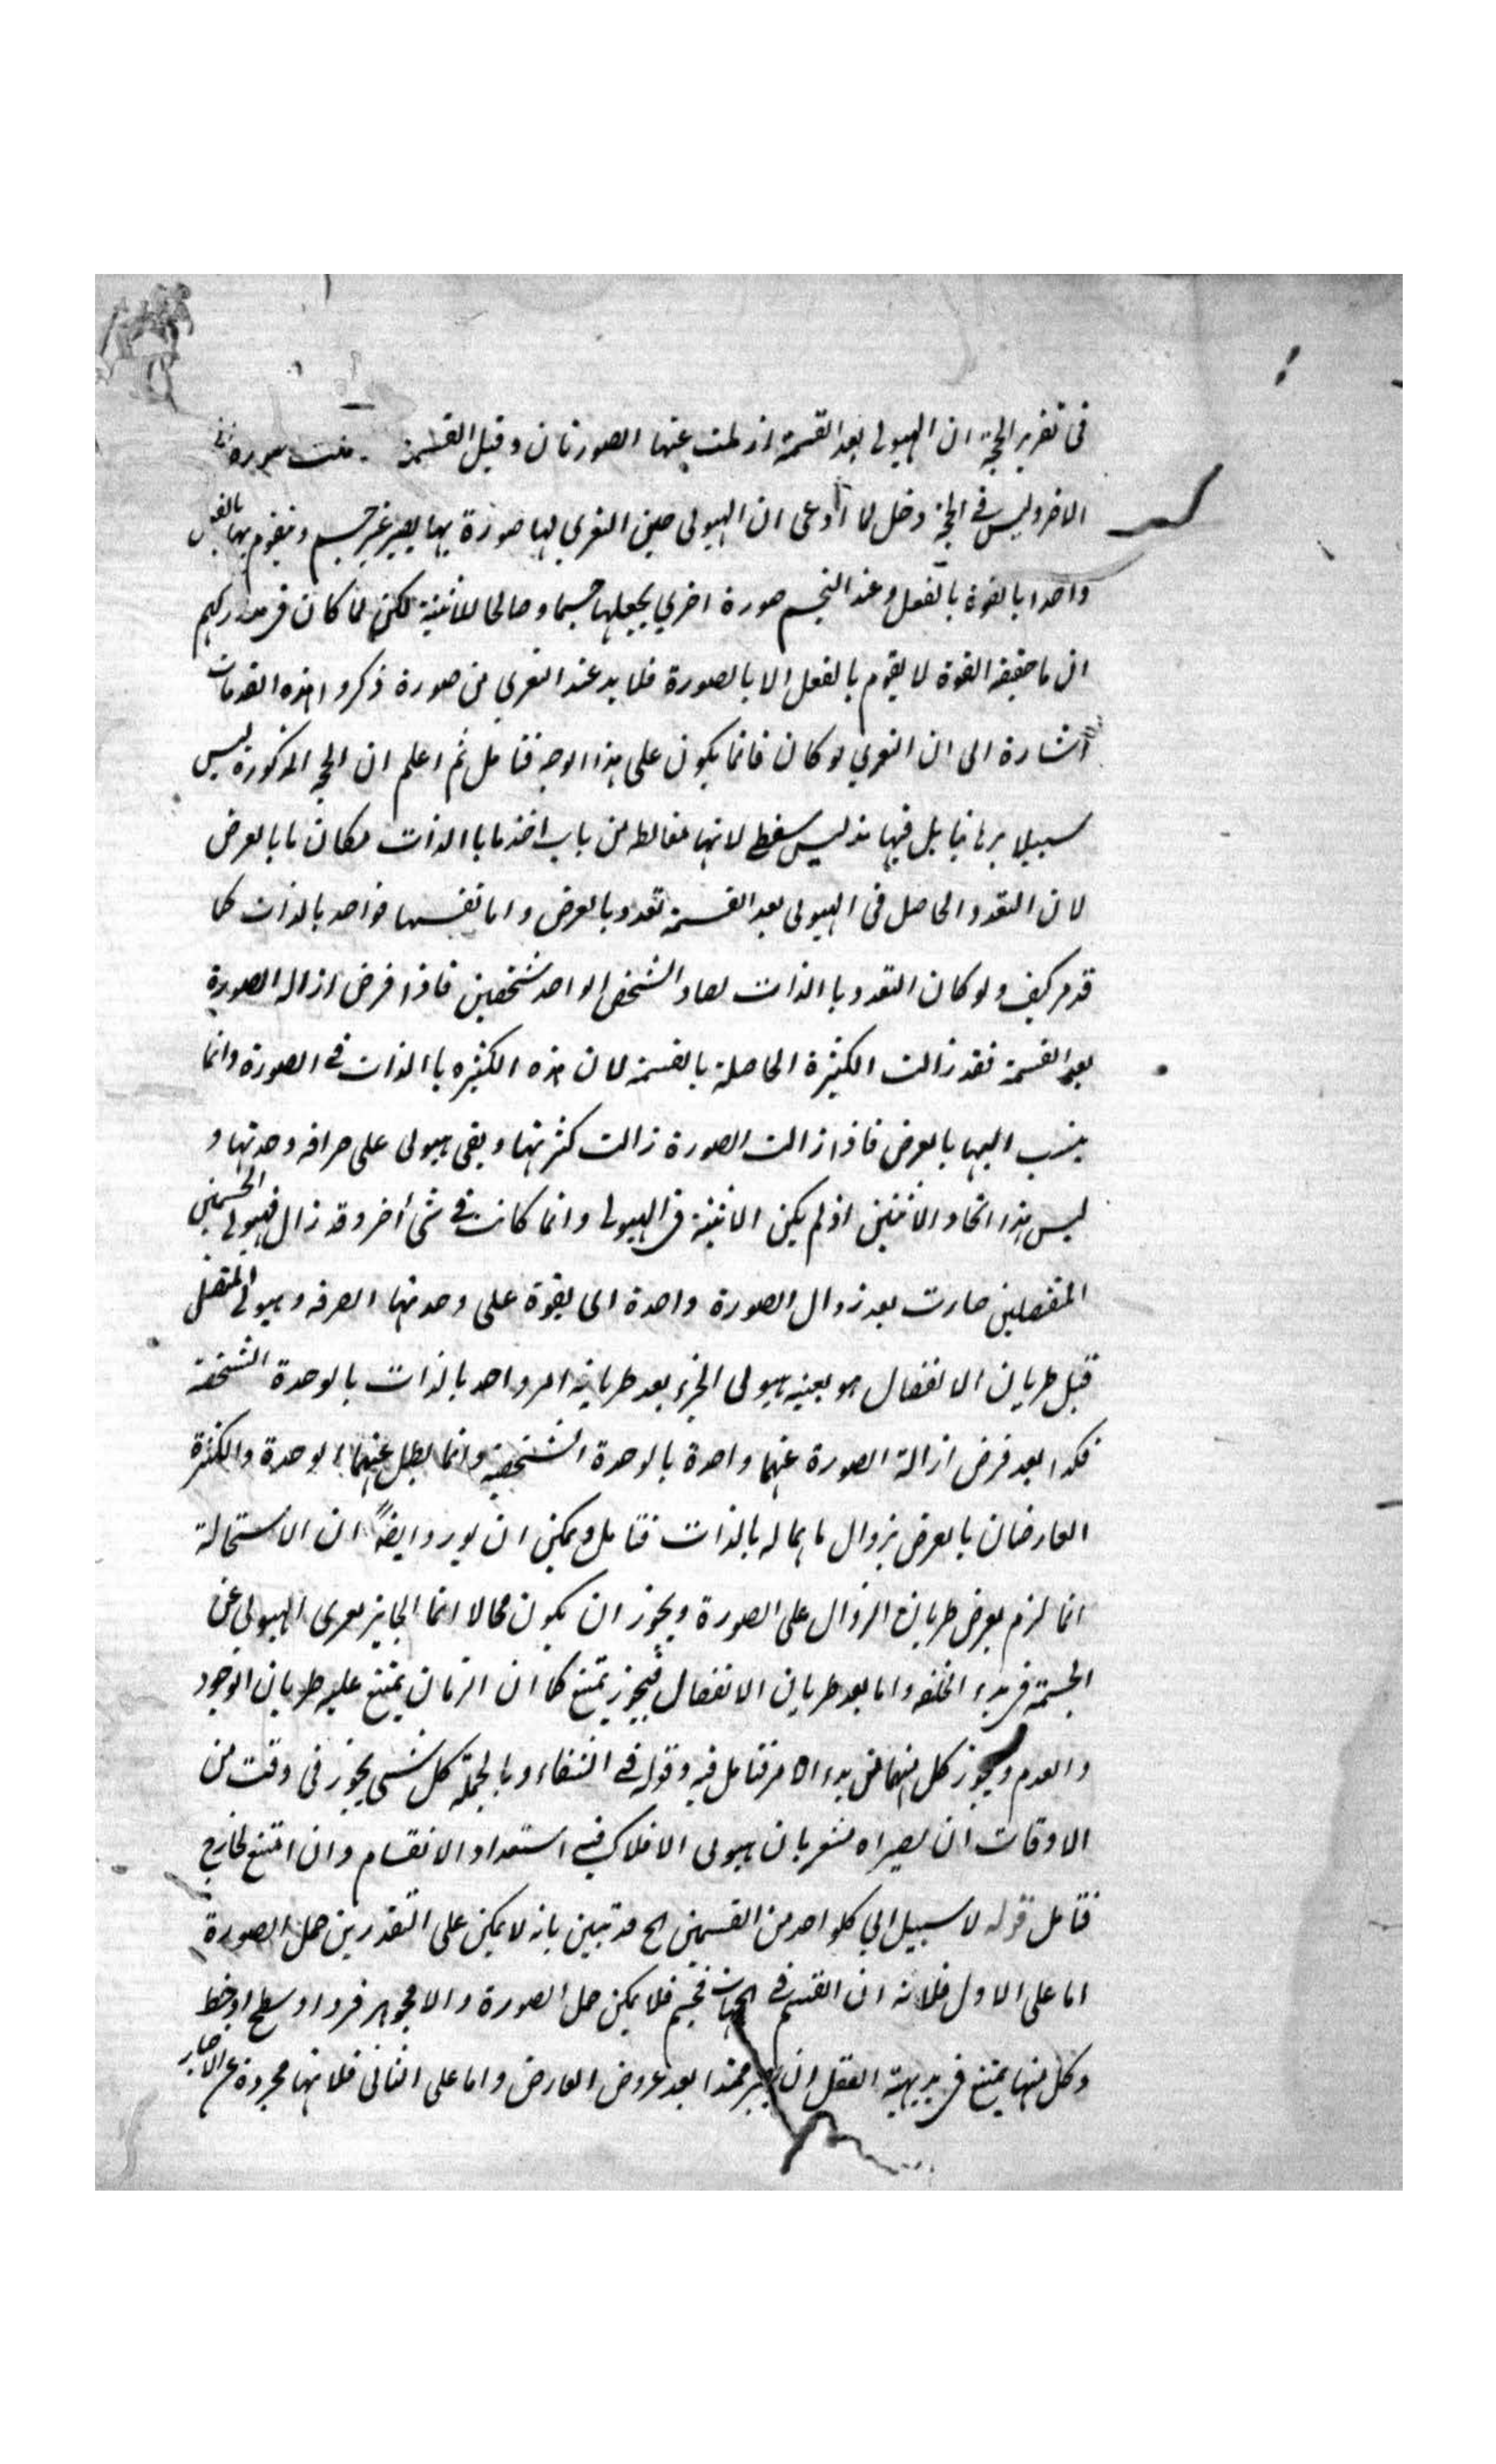 فى تقرير الحجة ان الهيولى بعد القسمة ازيلت عنها الصورتان وقبل القسمة
الاخر وليس فى الحجة دخل لما ادعى ان الهيولى حين التعرى لها صورة بها يصير غير جسم ويتقوم بها بالفعل
واحدا بالقوة بالفعل وعند التجسم صورة اخرى يجعلها جسما وصالحا للاثنينية لكن لما كان فى مداركهم
ان ما حقيقه القوة لا يقوم بالفعل الا بالصورة فلا بد عند التعرى من صورة ذكروا هذه المقدمات
اشارة الى ان التعرى لو كان فانما يكون على هذا الوجه فتامل ثم اعلم ان الحجة المذكورة ليس
سبيلا برهانيا بل فيها تدليس سفطى لانها مغالطه من باب اخذ ما باالذات مكان ما بالعرض
لان التعدد الحاصل فى الهيولى بعد القسمة تعدد بالعرض واما نفسها فواحد بالذات كما
قد مر كيف ولو كان التعدد باالذات لعاد الشخص الواحد شخصين فاذا فرض ازاله الصورة
بعد القسمة فقد زالت الكثرة الحاصلة بالقسمة لان هذه الكثره باالذات فى الصورة وانما
ينسب اليها بالعرض فاذا زالت الصورة زالت كثرتها وبقى هيولى على صرافه وحدتها و
ليس هذا اتحاد الاثنين اذ لم يكن الاثنينة فى الهيولى وانما كانت فى شئ أخر وقد زال فهيولى الجسمين
المنفصلين صارت بعد زوال الصورة واحدة اى بقوة على وحدتها الصرفه وهيولى المتصل
قبل طريان الانفصال هو بعينه هيولى الجزء بعد طريانه امر واحد بالذات بالوحدة الشخصة
فكذا بعد فرض ازالة الصورة عنهما واحدة بالوحدة الشخصية وانما بطل عنهما الوحدة والكثرة
العارضان بالعرض بزوال ما هما له بالذات فتامل ويمكن ان يورد ايضاً ان الاستحالة
انما لزم بعرض طريان الزوال على الصورة ويجوز ان يكون محالا انما الجايز تعرى الهيولى عن
الجسمة فى بدء الخلقه واما بعد طريان الانفصال فيجوز يمتنع كما ان الزمان يمتنع عليه طريان الوجود
والعدم ويجوز كل منهما من بدء الامر فتامل فيه وقوله فى الشفاء وبالجملة كل شئ يجوز فى وقت من
الاوقات ان يصيراه مشعر بان هيولى الافلاك فيه استعداد الانقسام وان امتنع لخارج
فتامل قوله لا سبيل الى كلواحد من القسمين الخ قد تبين بانه لا يمكن على التقدرين حمل الصورة
اما على الاول فلانه ان انقسم فى الجهات فجسم فلا يمكن حمل الصورة والا فجوهر فرد او سطح او خط
وكل منها يمتنع فى بديهية العقل ان يصير ممتدا بعد عروض العارض واما على الثانى فلانها مجردة عن